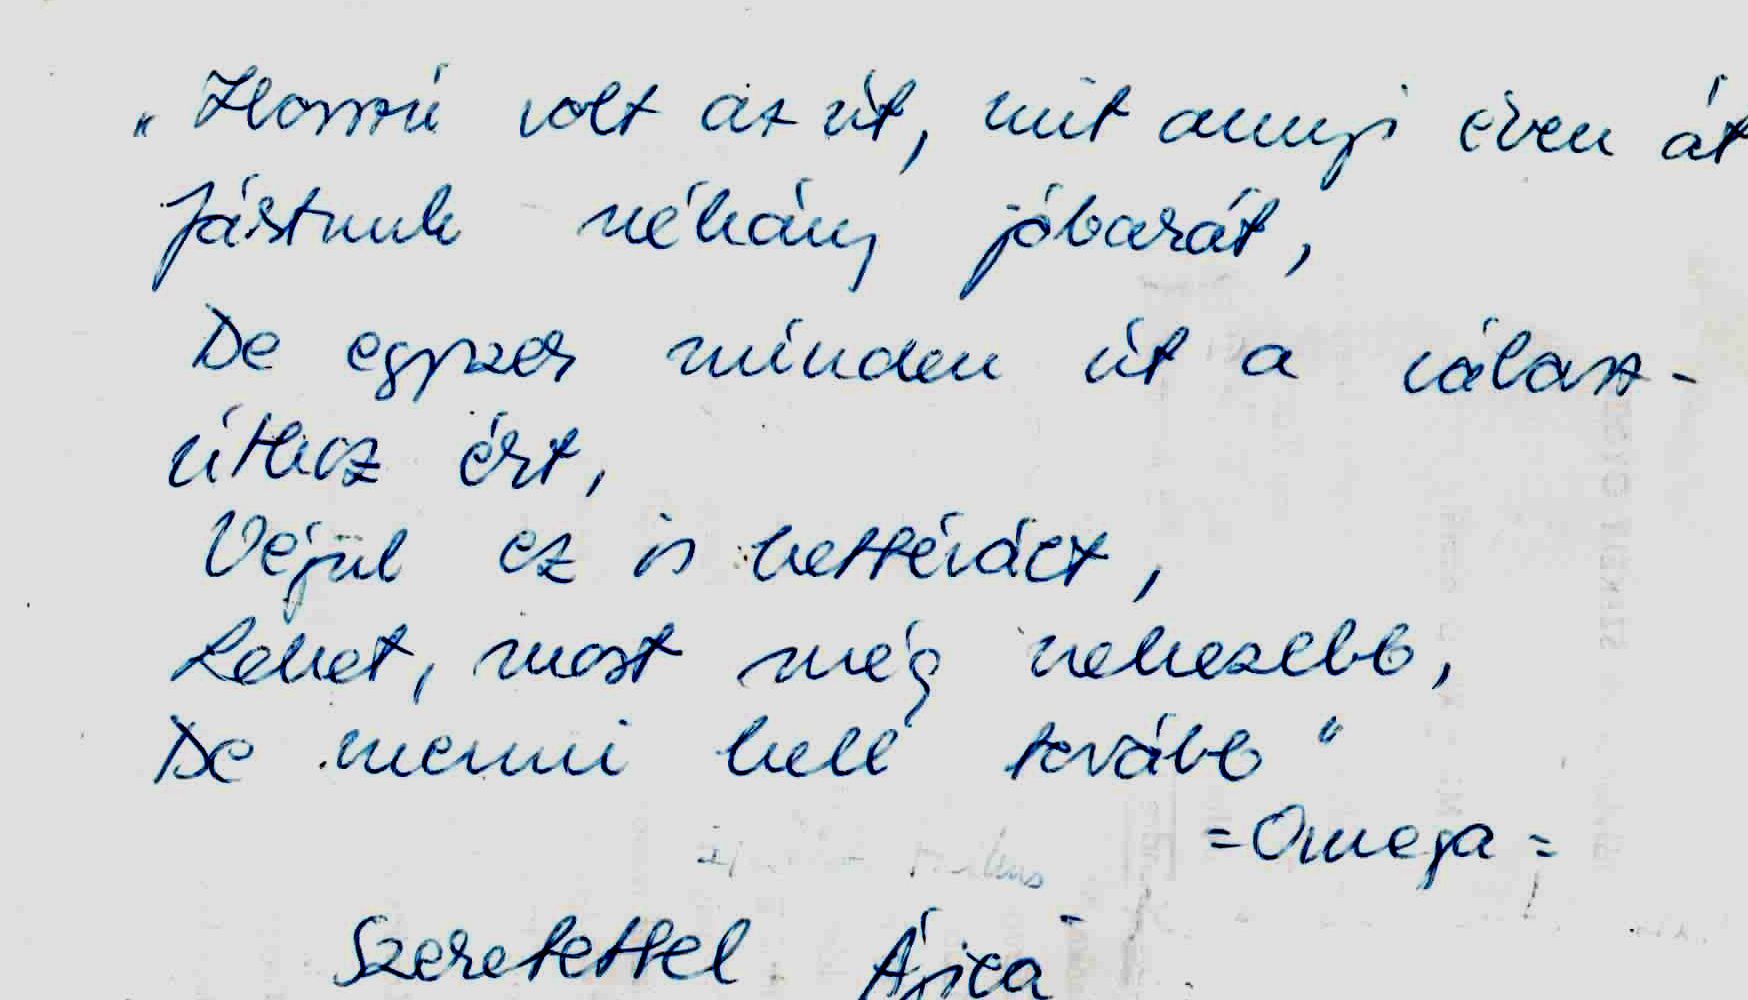 „Hosszú volt az út, mit annyi éven át
Jártunk néhány jóbarát,
De egyszer minden út a válasz-
úthoz ért,
Végül ez is kettévált,
Lehet, most még nehezebb,
De menni kell tovább"
=Omega=
Szeretettel